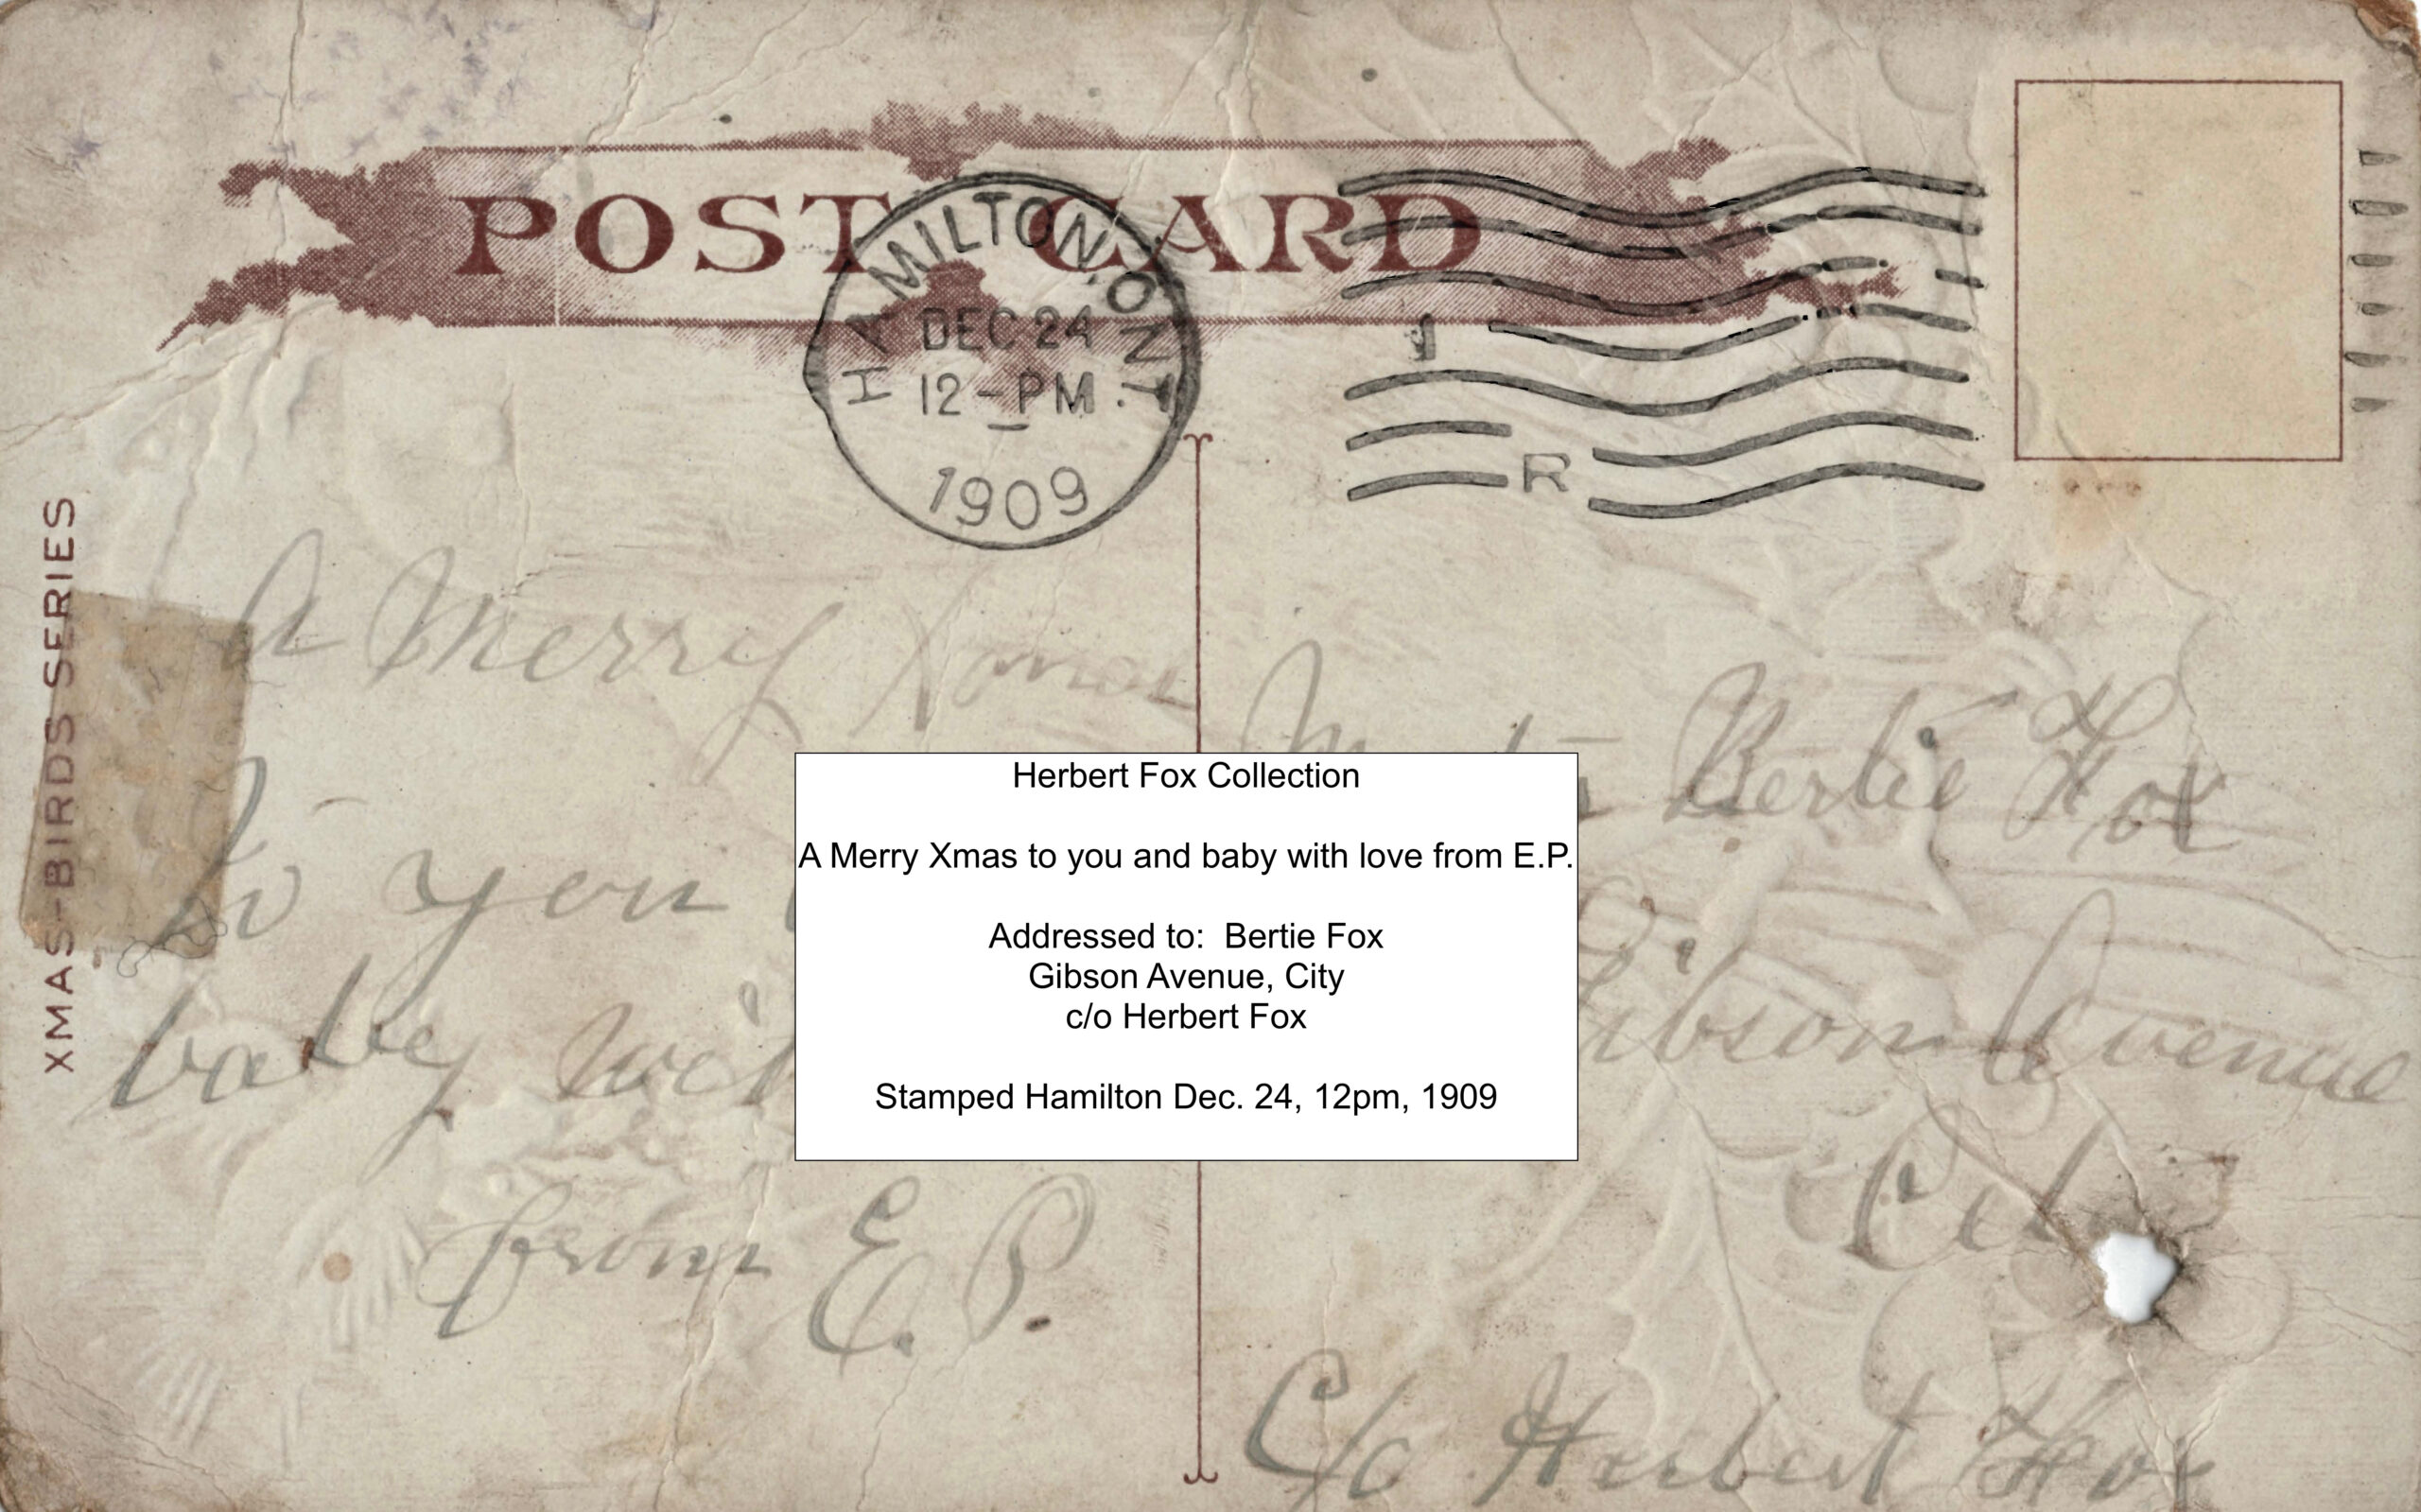 POST CARD
HAMILTON, ONT.
DEC 24
12-PM
1909
1
R
XMAS-BIRDS SERIES
A Merry Xmas
to you
baby
from E.P.
Bertie Fox
Gibson Avenue
C/o Herbert Fox
Herbert Fox Collection
A Merry Xmas to you and baby with love from E.P.
Addressed to: Bertie Fox
Gibson Avenue, City
c/o Herbert Fox
Stamped Hamilton Dec. 24, 12pm, 1909